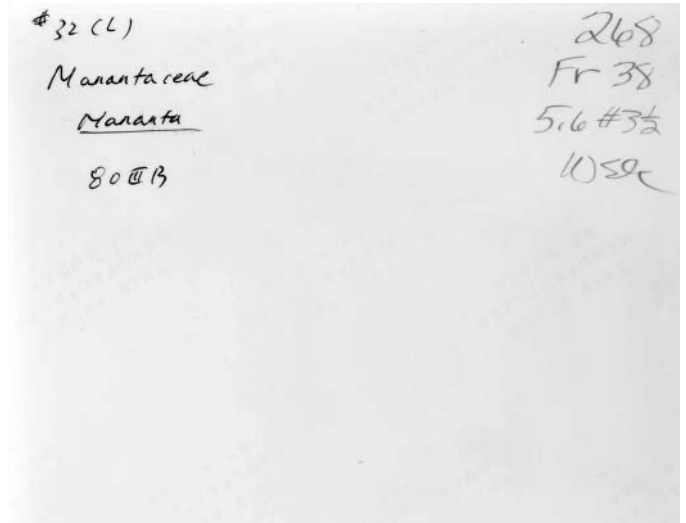 #32 (L)
Marantaceae
Maranta
80 III B
268
Fr 38
5.6 #3½
10 sec